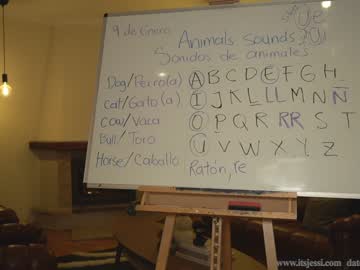 9 de Enero
Animals sounds
Sonidos de animales
Dog/Perro(a)
Cat/Gato(a)
Cow/Vaca
Bull/Toro
Horse/Caballo
A B C D E F G H
I J K L LL M N Ñ
O P Q R RR S T
U V W X Y Z
Ratón,
www.itsjessi.com